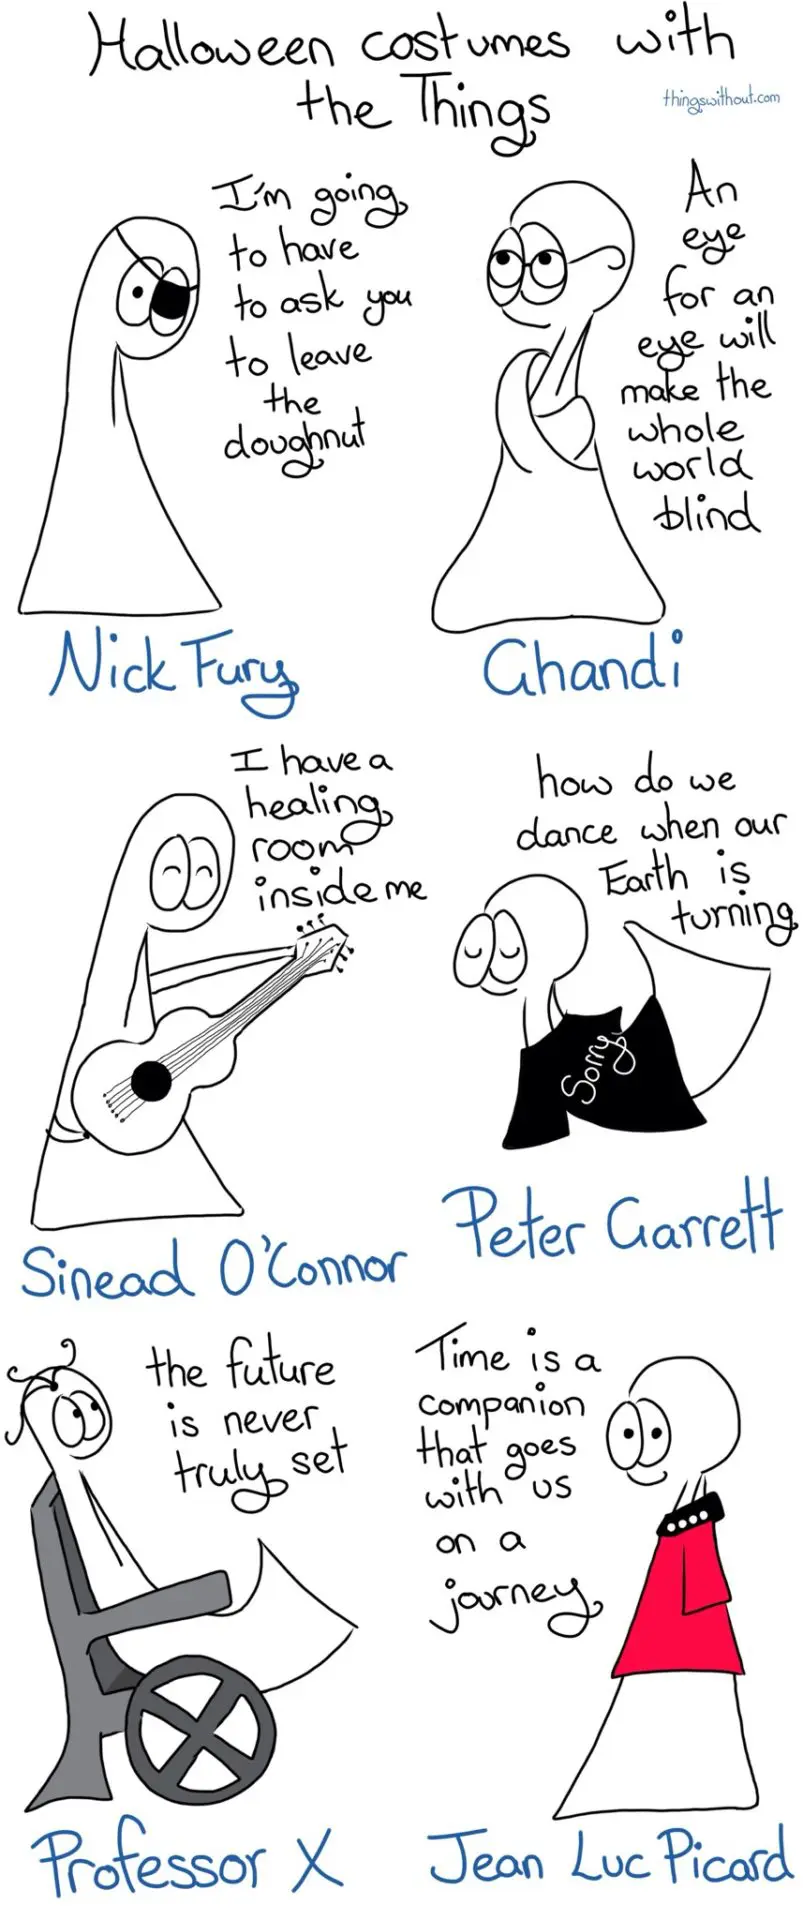 Halloween costumes with
the Things
thingswithout.com
I'm going
to have
to ask you
to leave
the
doughnut
Nick Fury
An
eye
for an
eye will
make the
whole
world
blind
Ghandi
I have a
healing
room
inside me
Sinead O'Connor
how do we
dance when our
Earth is
turning
Sorry
Peter Garrett
the future
is never
truly set
Professor X
Time is a
companion
that goes
with us
on a
journey
Jean Luc Picard